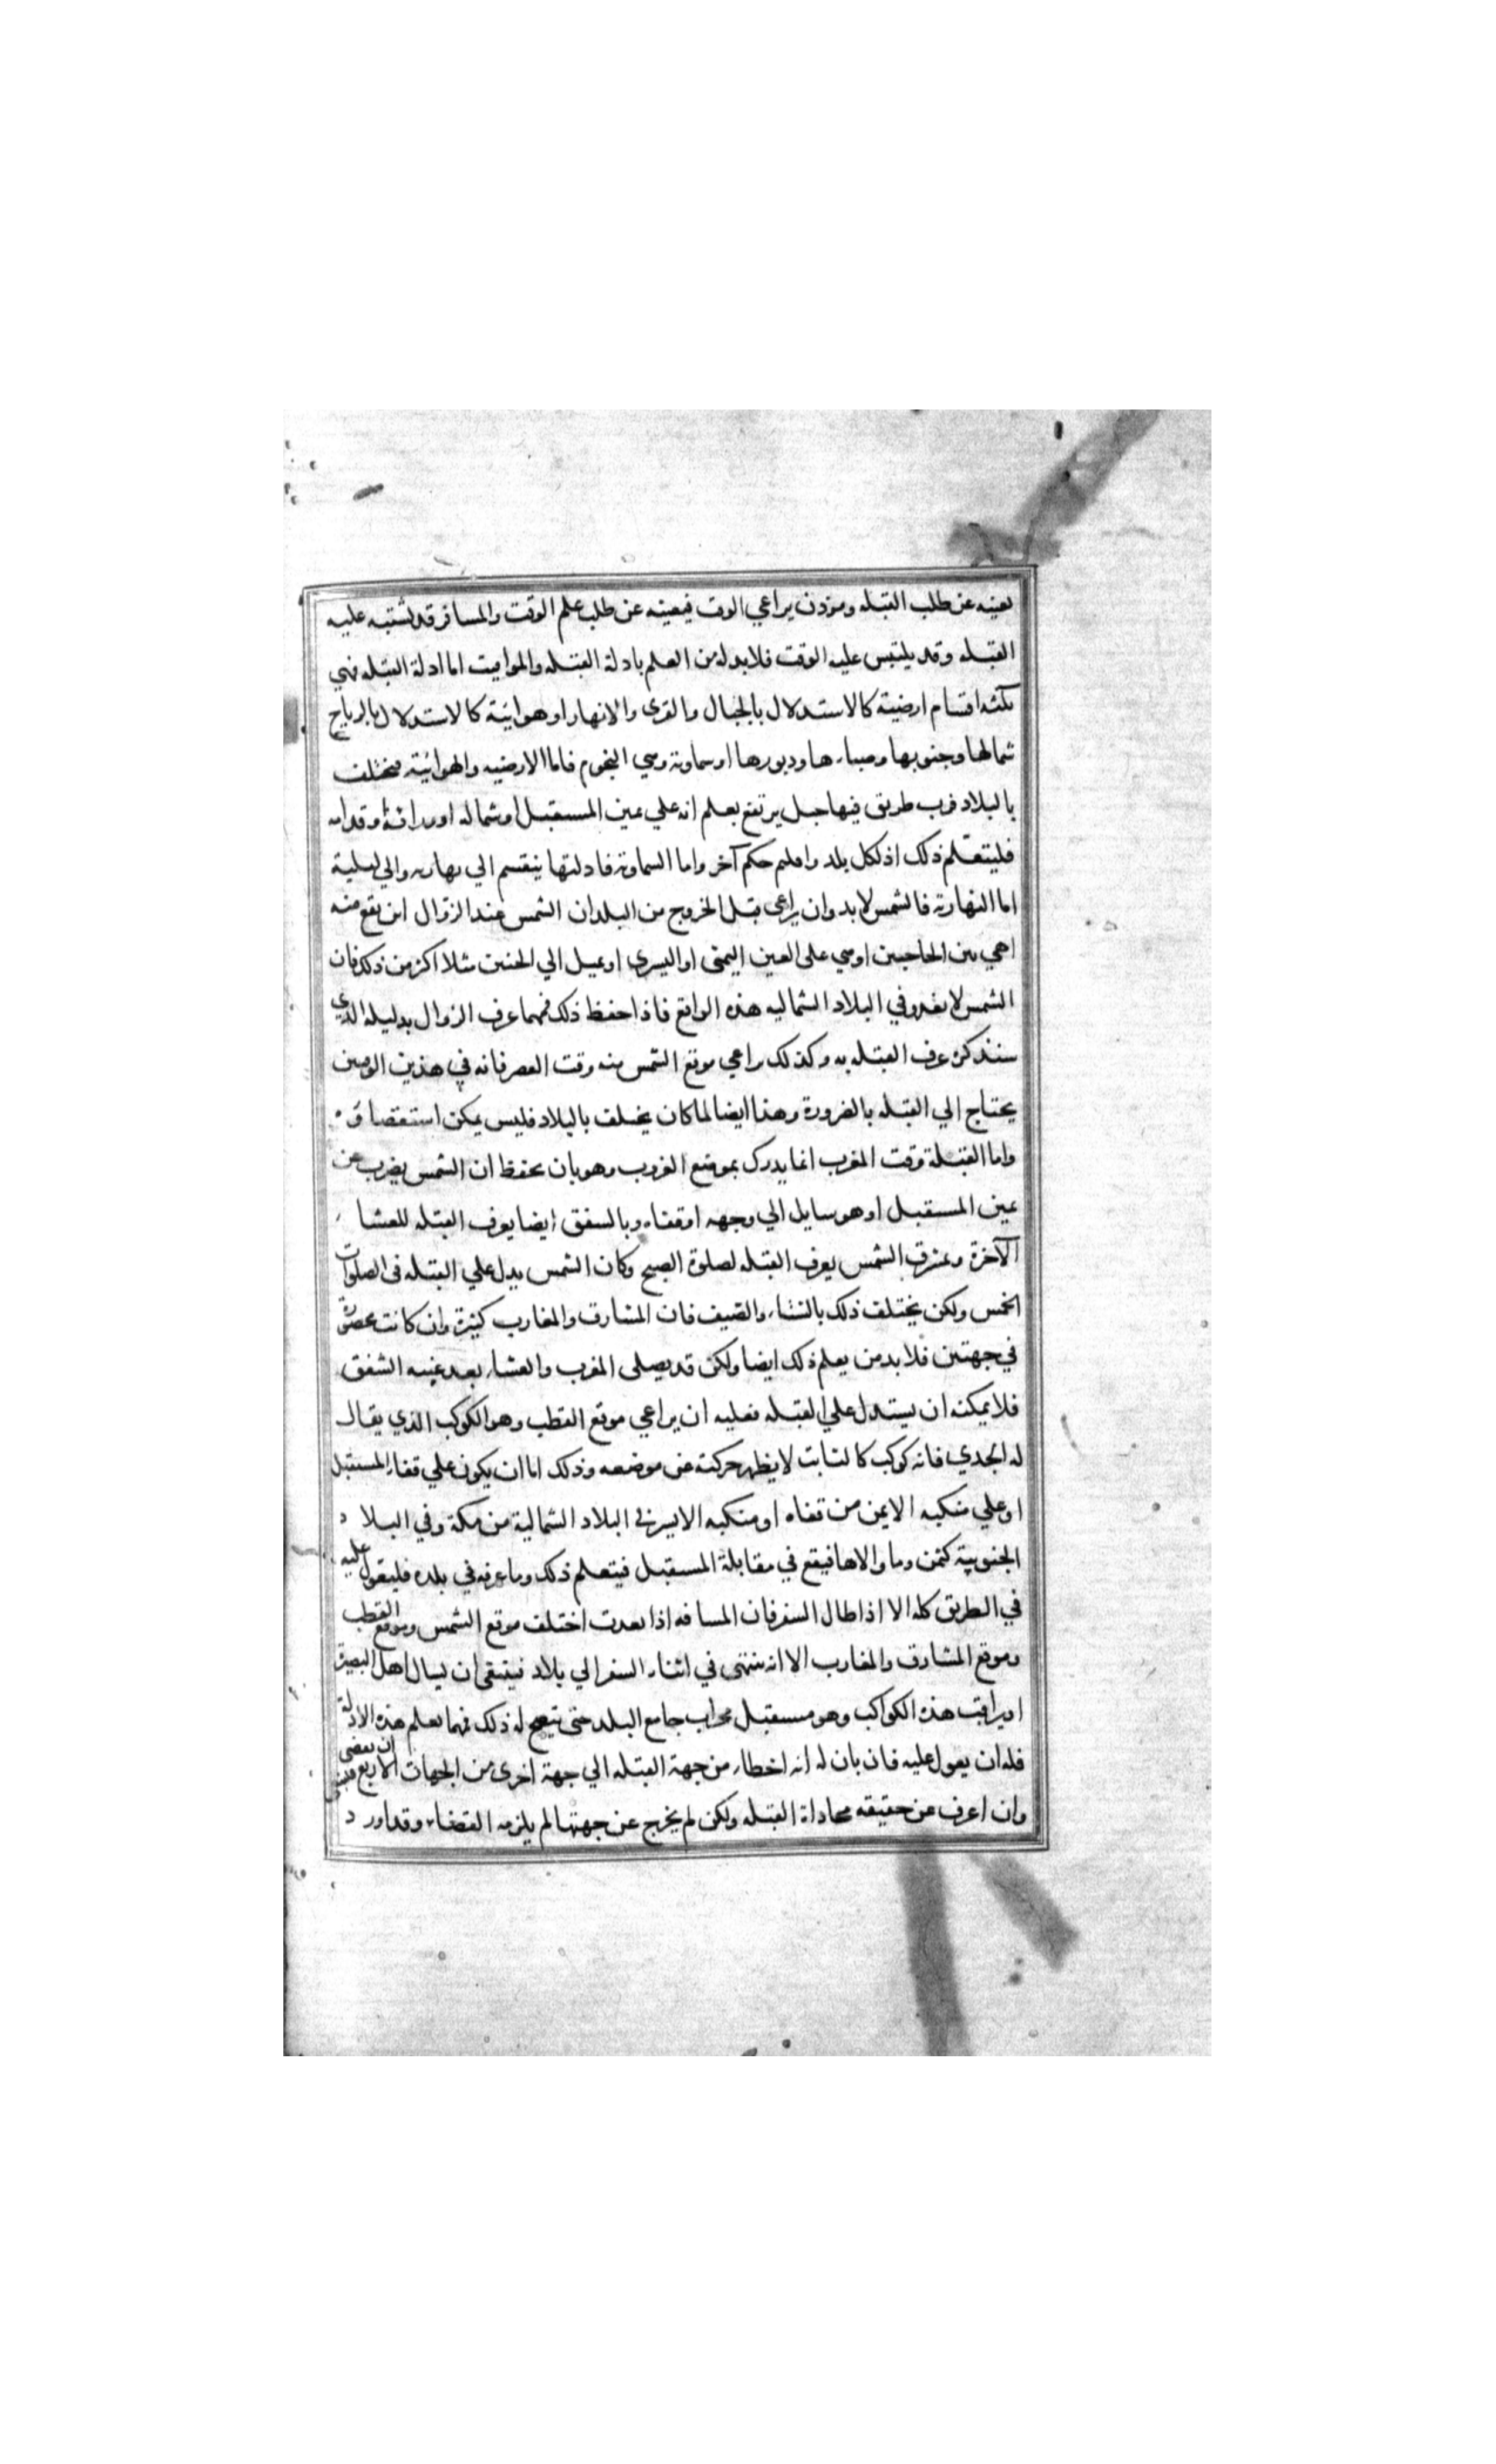 يعنيه عن طلب القبله وموذن يراعي الوقت فيعينه عن طلب علم الوقت والمسافر قد تشتبه عليه
القبله وقد يلتبس عليه الوقت فلابد له من العلم بادلة القبله والمواقيت اما ادلة القبله فهي
ثلثه اقسام ارضية كالاستدلال بالجبال والقرى والانهار او هوائية كالاستدلال بالرياح
شمالها وجنوبها وصباءها ودبورها او سماوية وهي النجوم فاما الارضيه والهوائية فتختلف
بالبلاد فرب طريق فيها جبل يرتفع يعلم انه علي يمين المستقبل او شماله او ورائه او قدامه
فليتعلم ذلك اذ لكل بلد واقليم حكم آخر واما السماوية فادلتها ينقسم الي نهاريه والي ليلية
اما النهارية فالشمس لابد وان يراعى قبل الخروج من البلد ان الشمس عند الزوال اين يقع منه
اهي بين الحاجبين او هي على العين اليمنى او اليسرى او يميل الي الجنبين مثلا اكثر من ذلك فان
الشمس لا تغدو في البلاد الشماليه هذه الواقع فاذا حفظ ذلك فمهما عرف الزوال بدليله الذي
سنذكره عرف القبله به وكذلك يراعي موقع الشمس منه وقت العصر فانه في هذين الوقتين
يحتاج الي القبله بالضرورة وهذا ايضا لما كان يختلف بالبلاد فليس يمكن استقصاؤه
واما القبلة وقت المغرب انما يدرك بموضع الغروب وهو بان يحفظ ان الشمس يغرب عن
يمين المستقبل او هو مايل الي وجهه او قفاه وبالشفق ايضا يعرف القبله للعشاء
الآخرة وبمشرق الشمس يعرف القبله لصلوة الصبح وكان الشمس يدل علي القبله فى الصلوات
الخمس ولكن يختلف ذلك بالشتاء والصيف فان المشارق والمغارب كثيرة وان كانت محصورة
في جهتين فلابد من يعلم ذلك ايضا ولكن قد يصلى المغرب والعشاء بعد غيبه الشفق
فلا يمكنه ان يستدل علي القبله فعليه ان يراعي موقع القطب وهو الكوكب الذي يقال
له الجدي فانه كوكب كالثابت لا يظهر حركته عن موضعه وذلك اما ان يكون علي قفاء المستقبل
او علي منكبه الايمن من قفاه او منكبه الايسر في البلاد الشمالية من مكة وفي البلاد
الجنوبية كيمن وما والاها فيقع في مقابلة المستقبل فيتعلم ذلك وما عرفه في بلده فليعول عليه
في الطريق كله الا اذا طال السفر فان المسافه اذا بعدت اختلف موقع الشمس وموقع القطب
وموقع المشارق والمغارب الا انه ينتهى في اثناء السفر الي بلاد فينبغي ان يسال اهل البصيرة
او يراقب هذه الكواكب وهو مستقبل محراب جامع البلد حتى يتضح له ذلك فمهما تعلم هذه الادلة
فله ان يعول عليه فان بان له انه اخطاء من جهة القبله الي جهة اخرى من الجهات الاربع فينبغي ان يقضى
وان اعرف عن حقيقه محاداة القبله ولكن لم يخرج عن جهتها لم يلزمه القضاء وقد اورد